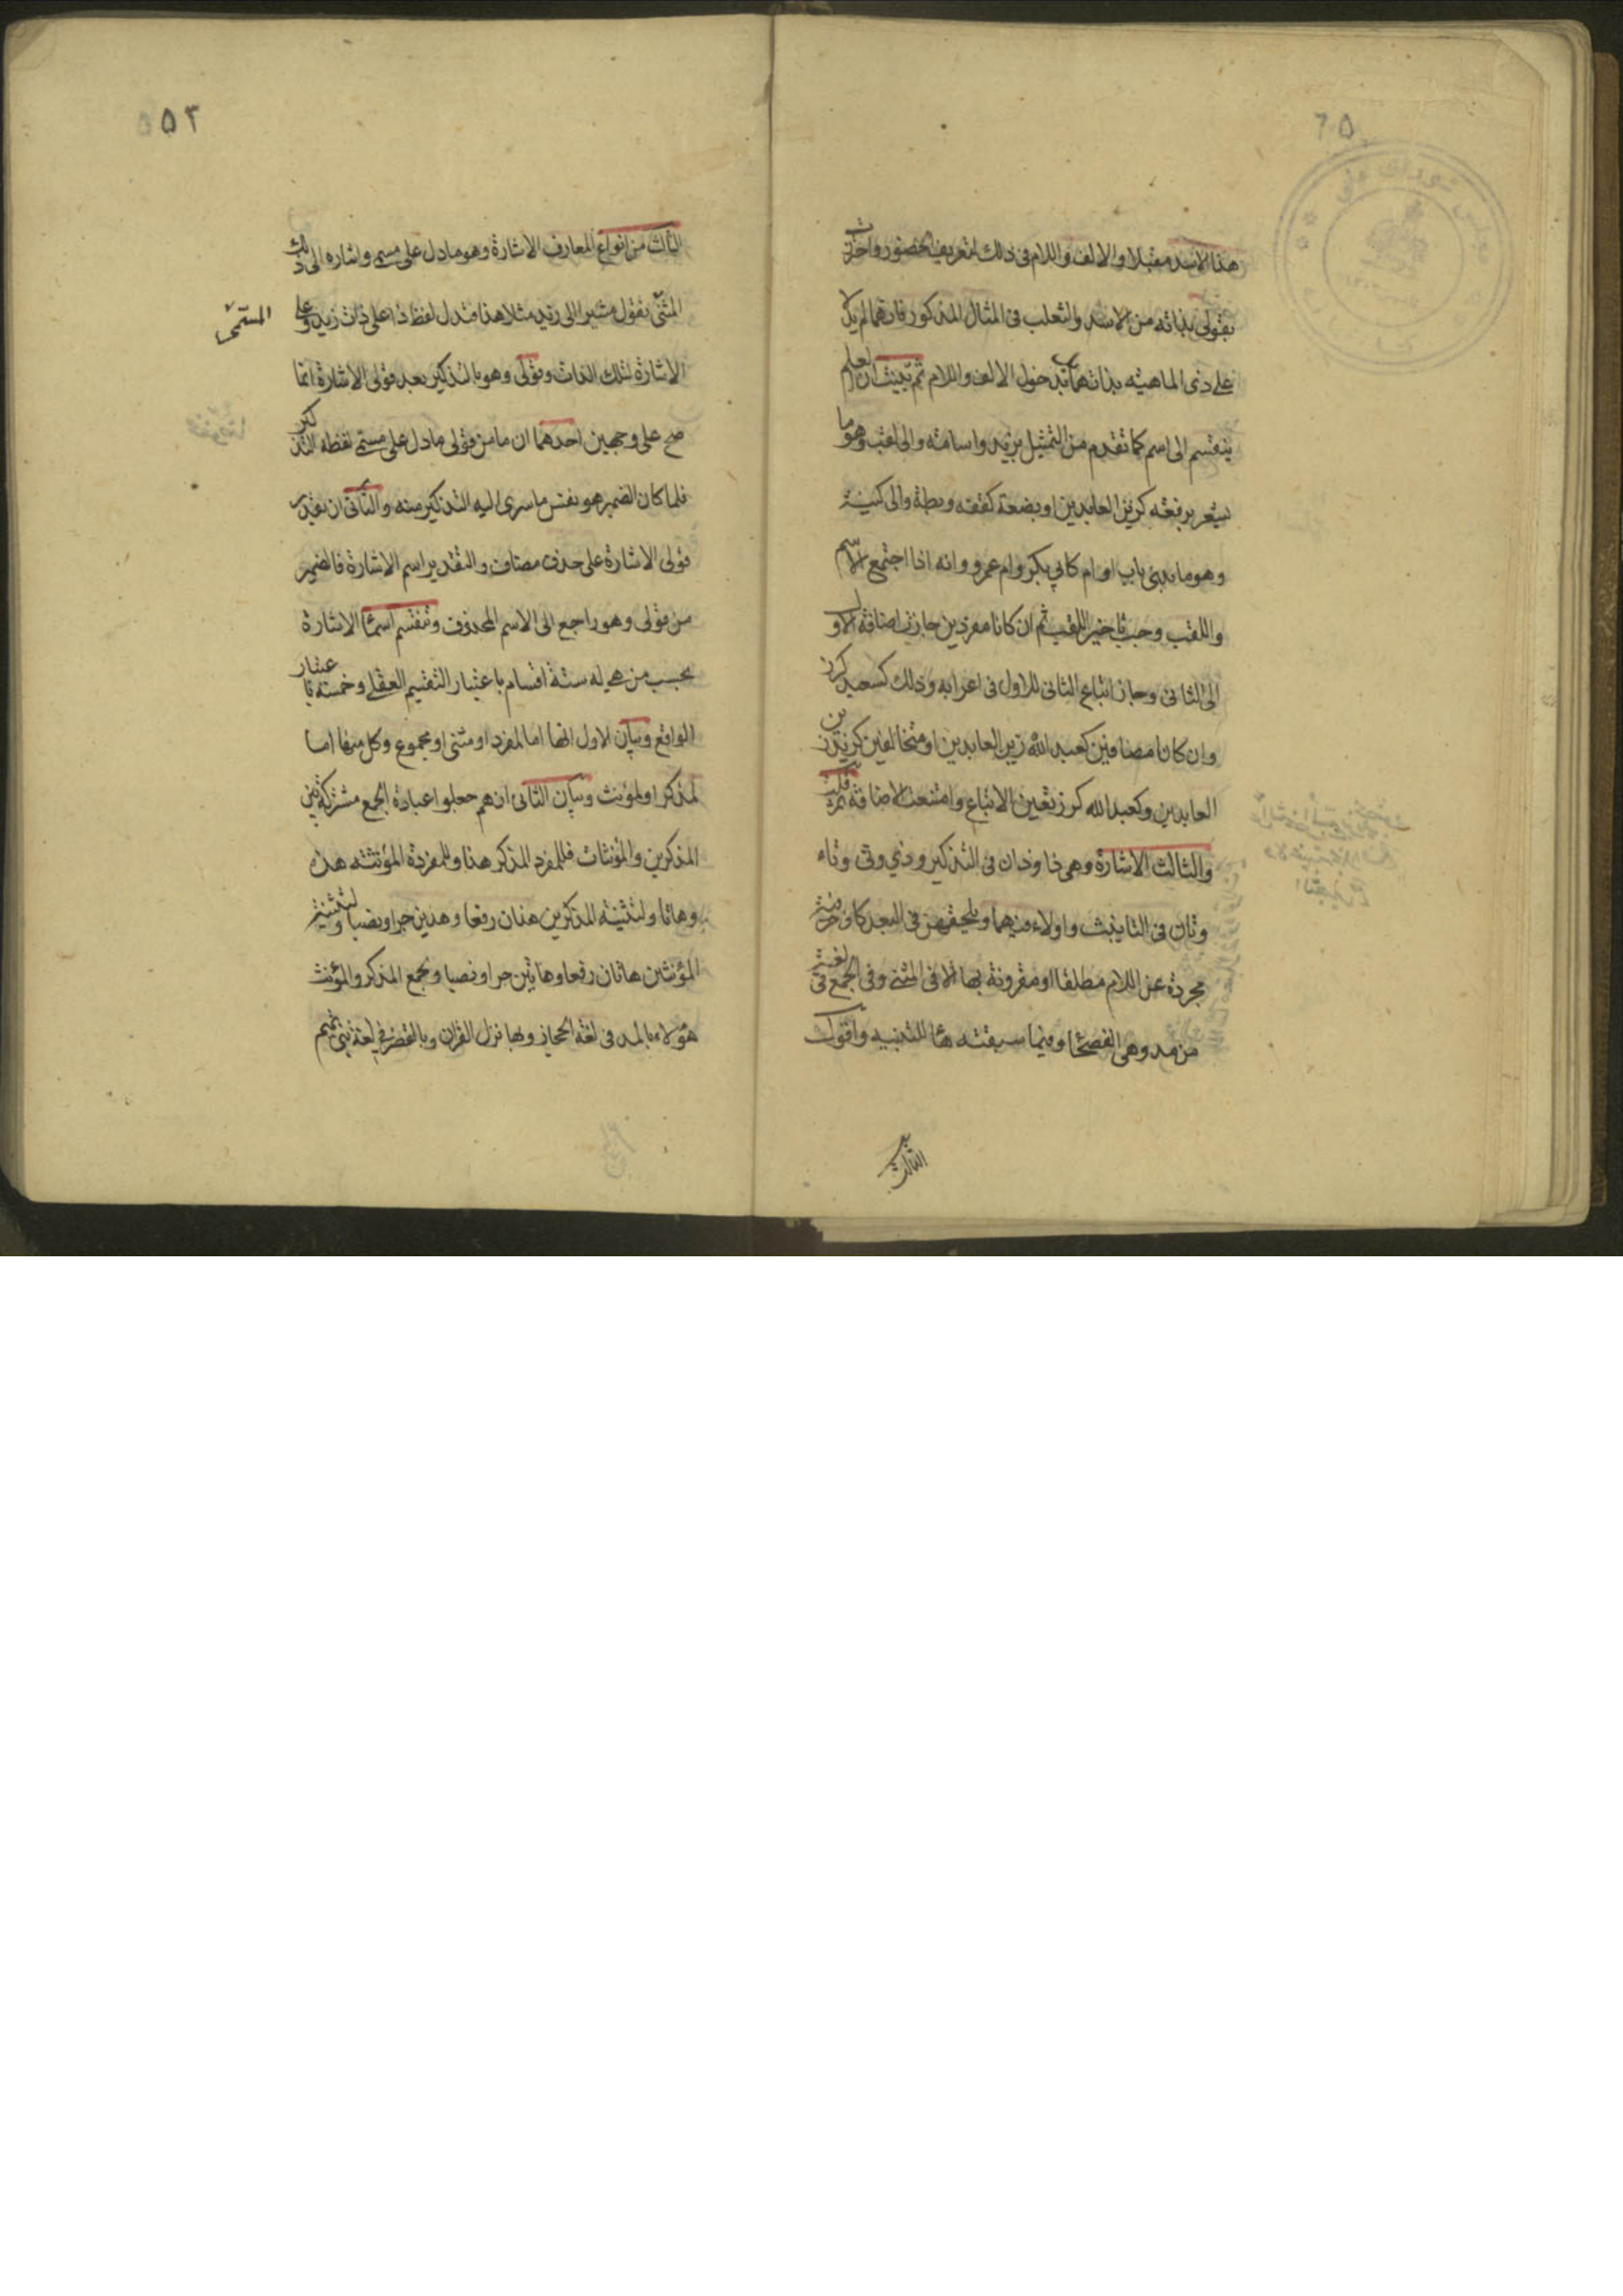 هذا الاسد مقبلا والالف واللام فى ذلك لتعريف الحضور واحترزت
بقولى بذاته من الاسد والثعلب فى المثال المذكور فانهما لم يدلا
على ذى الماهيته بذاتهما بل بدخول الالف واللام ثم بينت ان العلم
ينقسم الى اسم كما تقدم من التمثيل بزيد واسامة والى لقب وهو ما
يشعر برفعة كزين العابدين او بضعة كقفه وبطة والى كنية
وهو ما بدئ باب او ام كابى بكر وام عمرو وانه اذا اجتمع الاسم
واللقب وجب تاخير اللقب ثم ان كانا مفردين جازت اضافة الاول
الى الثانى وجاز اتباع الثانى للاول فى اعرابه وذلك كسعيد كرز
وان كانا مضافين كعبد الله زين العابدين او متخالفين كزيد زين
العابدين وكعبد الله كرز تعين الاتباع وامتنعت الاضافة ثم قلت
والثالث الاشارة وهى ذا وذان فى التذكير وذى وتى وتاء
وتان فى التانيث واولاء فيهما ويلحقهن فى البعد كاف حرفية
مجردة عن اللام مطلقا او مقرونة بها الا فى المثنى وفى الجمع فى لغة
من مد وهى الفصحى وفيما سبقته ها للتنبيه واقول
الثالث
٢٥٥
الثالث من انواع المعارف الاشارة وهو ما دل على مسمى واشارة الى ذلك
المسمى تقول مشيرا الى زيد مثلا هذا فتدل لفظ ذا على ذات زيد وعلى
الاشارة لتلك الذات وقولى وهو بالتذكير بعد قولى الاشارة انما
صح على وجهين احدهما ان ما من قولى ما دل على مسمى لفظه التذكير
فلما كان الضمير هو نفس ما سرى اليه التذكير منه والثانى ان يقدر
قولى الاشارة على حذف مضاف والتقدير اسم الاشارة فالضمير
من قولى وهو راجع الى الاسم المحذوف وتنقسم اسماء الاشارة
بحسب من هى له ستة اقسام باعتبار التقسيم العقلى وخمسة باعتبار
الواقع وبيان الاول انها اما لمفرد او مثنى او مجموع وكل منها اما
لمذكر او لمؤنث وبيان الثانى انهم جعلوا عبارة الجمع مشتركة بين
المذكرين والمؤنثات فللمفرد المذكر هذا وللمفردة المؤنثة هذه
وهاتا ولتثنية المذكرين هذان رفعا وهذين جرا ونصبا ولتثنية
المؤنثين هاتان رفعا وهاتين جرا ونصبا ولجمع المذكر والمؤنث
هؤلاء بالمد فى لغة الحجاز وبها نزل القران وبالقصر فى لغة بنى تميم
المسمى